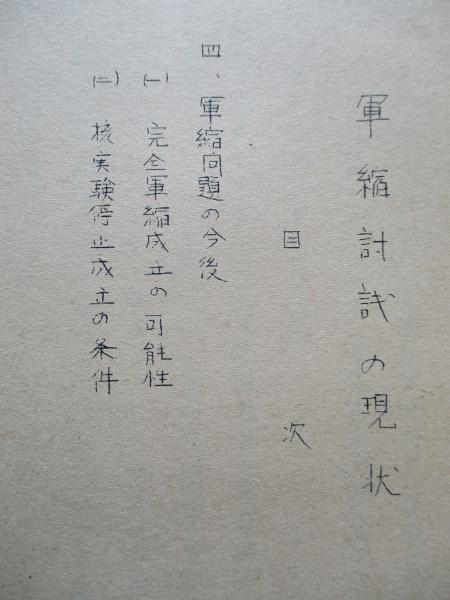 軍縮討議の現状
目次
四、軍縮問題の今後
(一) 完全軍縮成立の可能性
(二) 核実験停止成立の条件